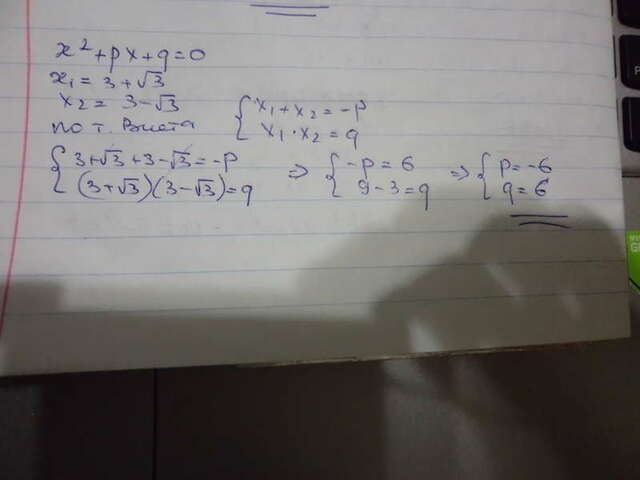 x² + px + q = 0
x₁ = 3 + √3
x₂ = 3 - √3
по т. Виета { x₁ + x₂ = -p
x₁ · x₂ = q
{ 3 + √3 + 3 - √3 = -p ⇒ { -p = 6 ⇒ { p = -6
(3 + √3)(3 - √3) = q 9 - 3 = q q = 6